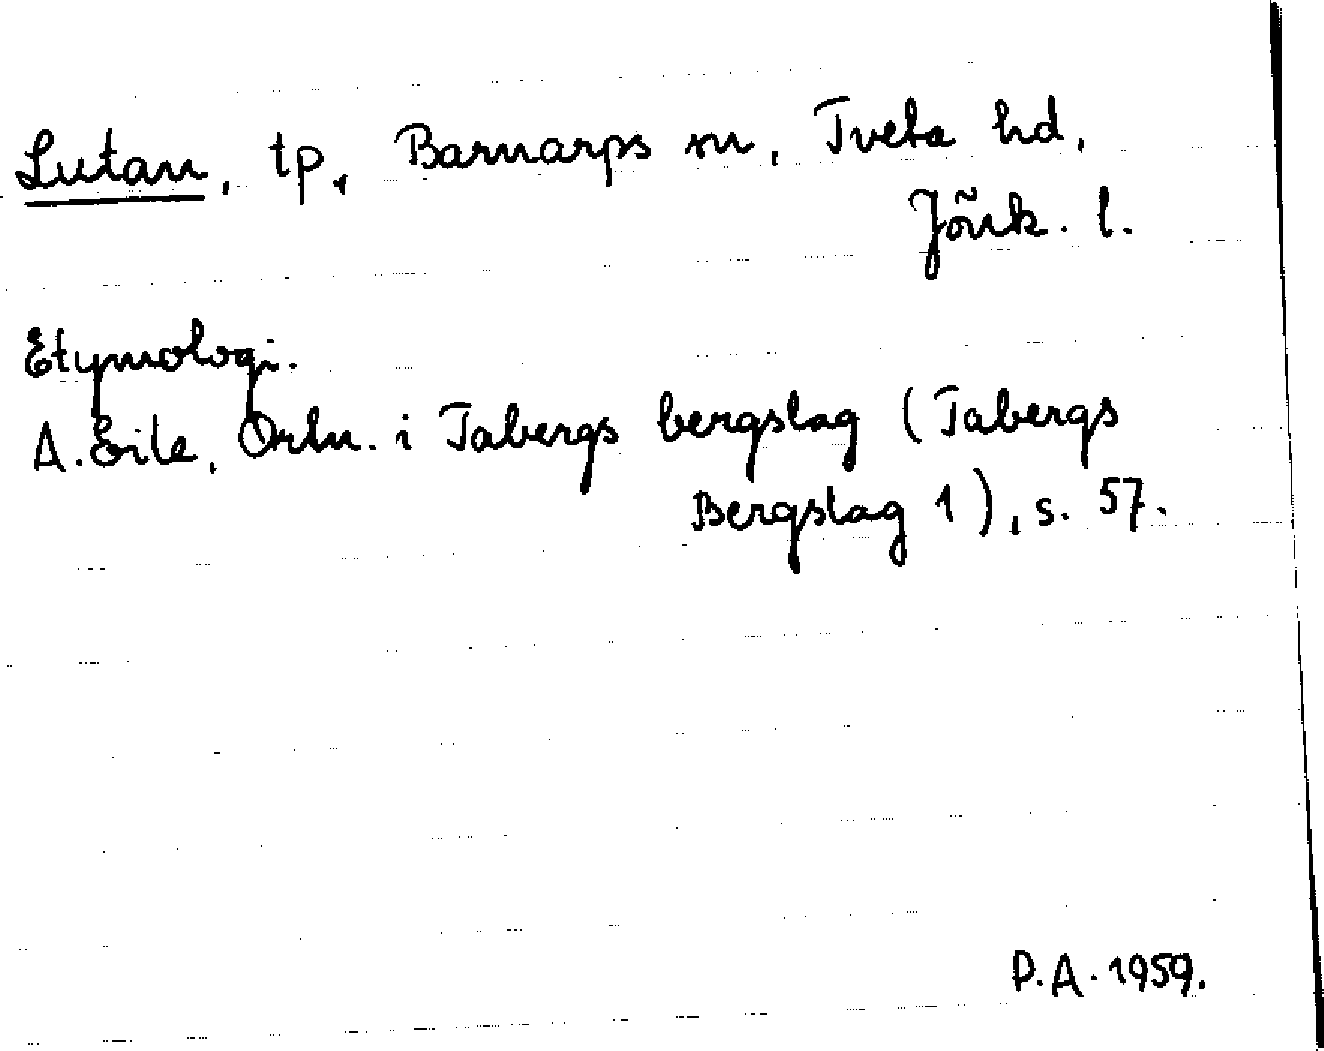 Lutan, tp, Barnarps sn, Tveta hd,
Jönk. l.
Etymologi.
A. Eile, Ortn. i Tabergs bergslag (Tabergs
Bergslag 1), s. 57.
P.A. 1959.